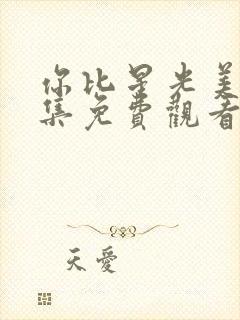 你比星光美
集免費觀看
天愛